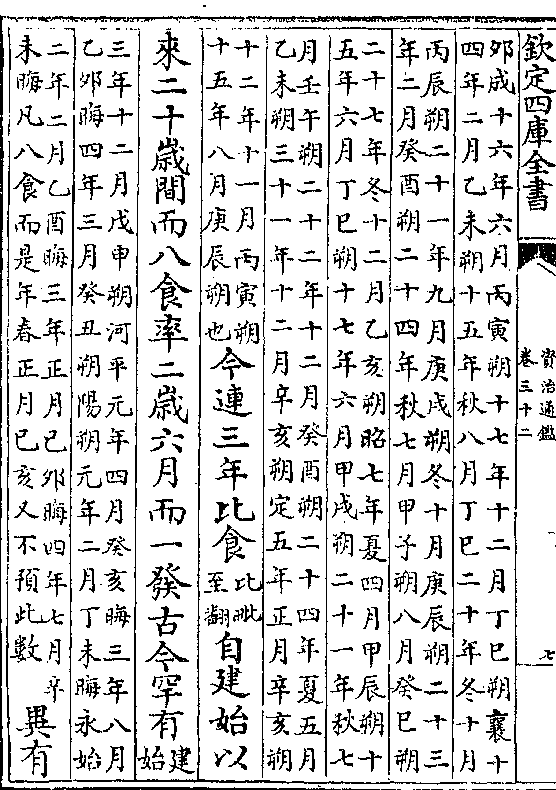 欽定四庫全書
資治通鑑
卷三十二
七
邜成十六年六月丙寅朔十七年十二月丁巳朔襄十
四年二月乙未朔十五年秋八月丁巳二十年冬十月
丙辰朔二十一年九月庚戌朔冬十月庚辰朔二十三
年二月癸酉朔二十四年秋七月甲子朔八月癸巳朔
二十七年冬十二月乙亥朔昭七年夏四月甲辰朔十
五年六月丁巳朔十七年六月甲戌朔二十一年秋七
月壬午朔二十二年十二月癸酉朔二十四年夏五月
乙未朔三十一年十二月辛亥朔定五年正月辛亥朔
十二年十一月丙寅朔
十五年八月庚辰朔也
今連三年比食
比毗
至翻
自建始以
來二十歲間而八食率二歲六月而一發古今罕有
建
始
三年十二月戊申朔河平元年四月癸亥晦三年八月
乙邜晦四年三月癸丑朔陽朔元年二月丁未晦永始
二年二月乙酉晦三年正月己邜晦四年七月辛
未晦凡八食而是年春正月己亥又不預此數
異有